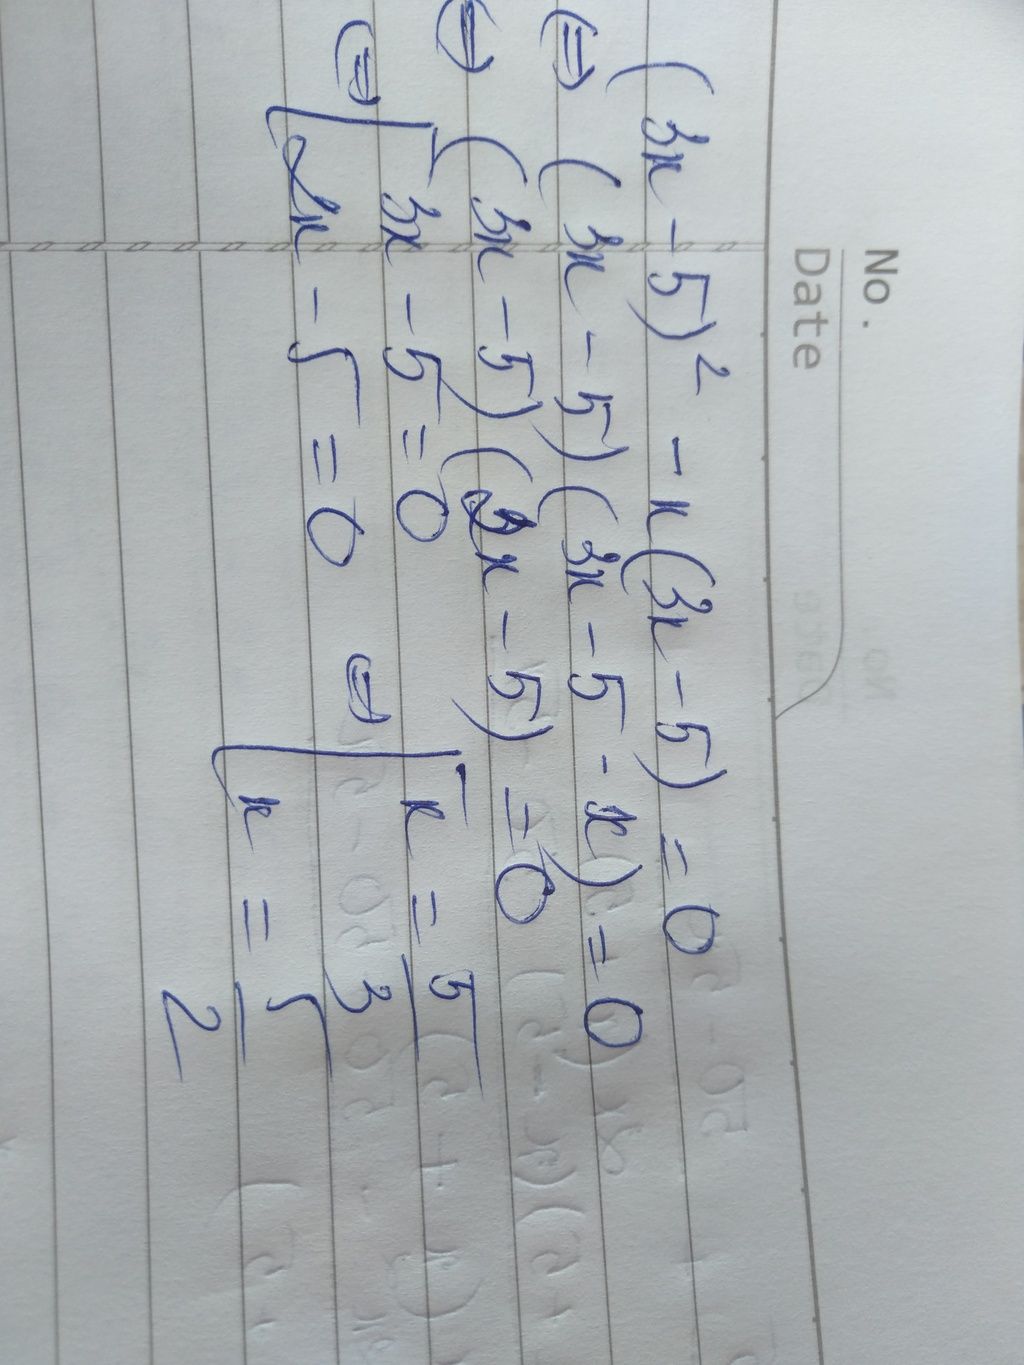 No.
Date
(3x - 5)² - x(3x - 5) = 0
⇔ (3x - 5)(3x - 5 - x) = 0
⇔ (3x - 5)(2x - 5) = 0
⇔ [ 3x - 5 = 0 ⇔ [ x = 5/3
2x - 5 = 0 x = 5/2